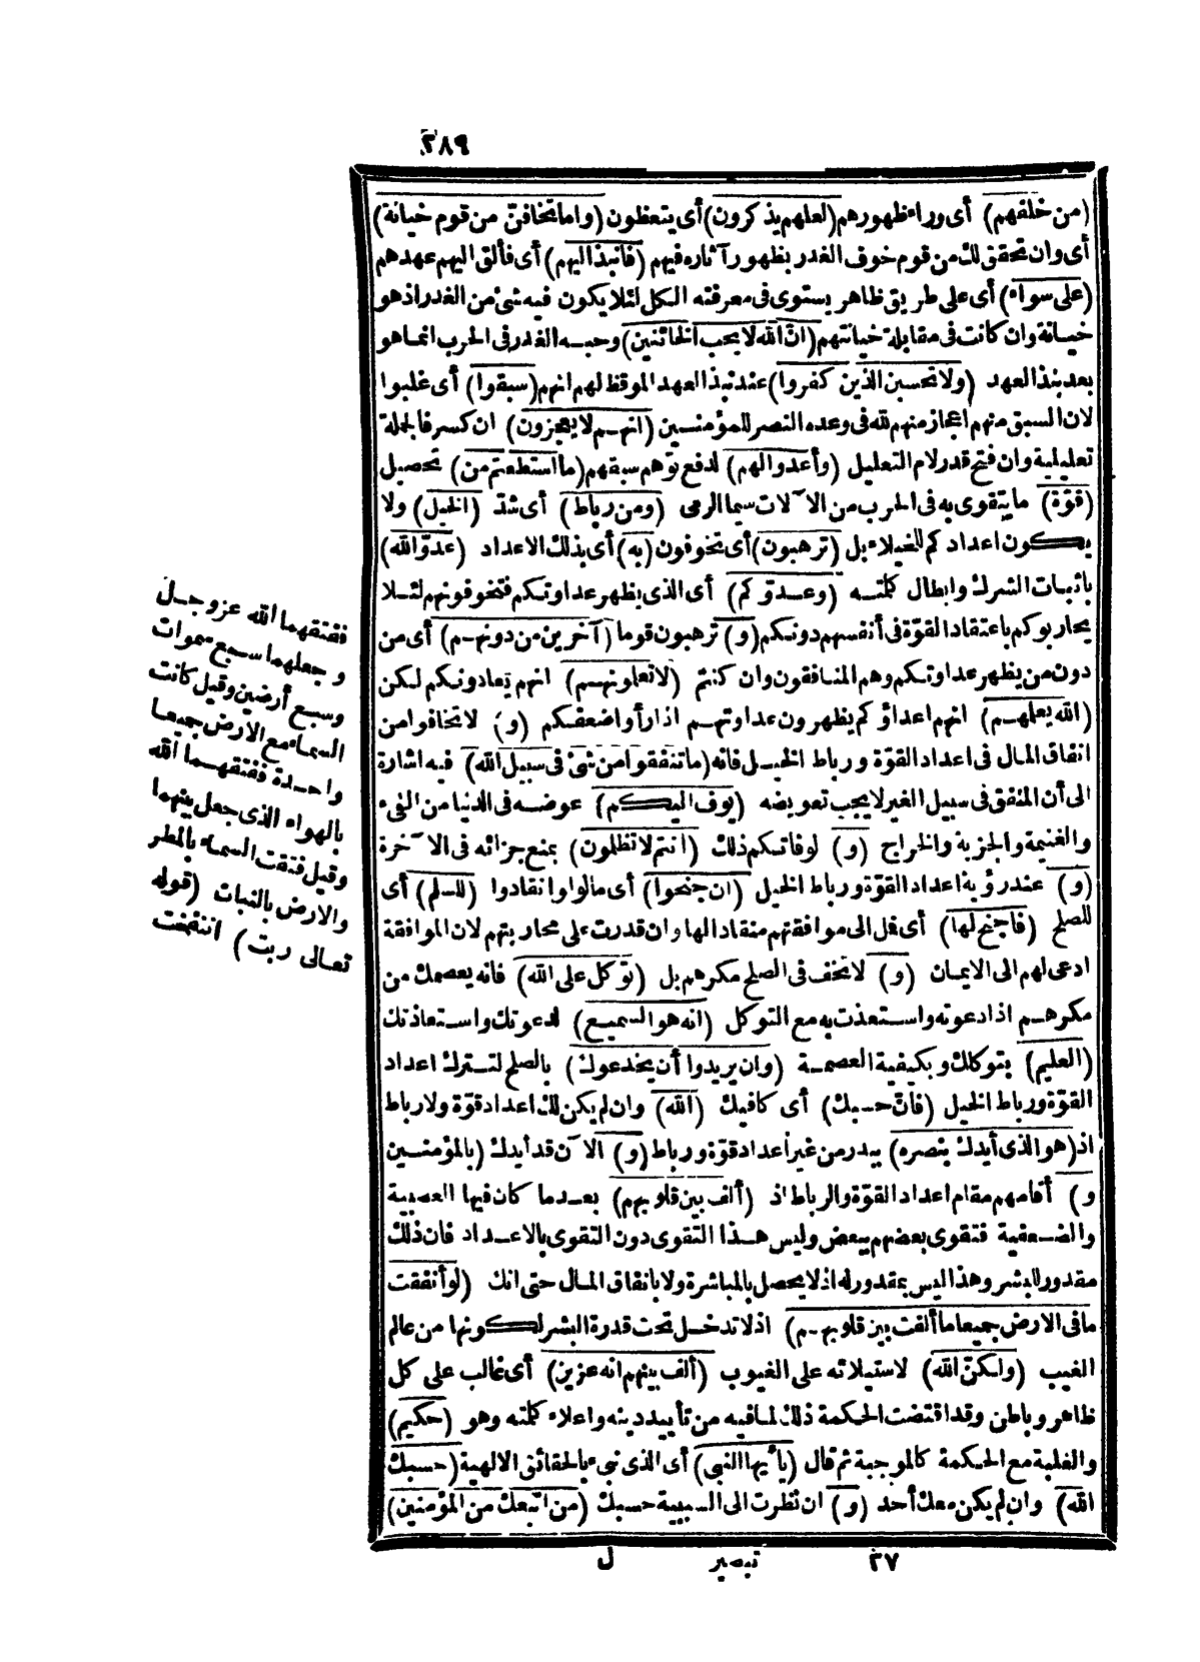 ٢٨٩
(من خلفهم) أى وراء ظهورهم (لعلهم يذكرون) أى يتعظون (واما تخافنّ من قوم خيانة)
أى وان تحقق لك من قوم خوف الغدر بظهور آثاره فيهم (فانبذ اليهم) أى فألق اليهم عهدهم
(على سواء) أى على طريق ظاهر يستوى فى معرفته الكل لئلا يكون فيه شئ من الغدر اذ هو
خيانة وان كانت فى مقابلة خيانتهم (انّ الله لا يحب الخائنين) وحبه الغدر فى الحرب انما هو
بعد نبذ العهد (ولا تحسبن الذين كفروا) عند نبذ العهد الموقظ لهم انهم (سبقوا) أى غلبوا
لان السبق منهم اعجاز منهم لله فى وعده النصر للمؤمنين (انهم لا يعجزون) ان كسر فالجملة
تعليلية وان فتح قدر لام التعليل (وأعدوا لهم) لدفع توّهم سبقهم (ما استطعتم من) تحصيل
(قوّة) ما يتقوى به فى الحرب من الآلات سيما الرمى (ومن رباط) أى شدّ (الخيل) ولا
يكون اعدادكم للخيلاء بل (ترهبون) أى تخوفون (به) أى بذلك الاعداد (عدوّ الله)
باثبات الشرك وابطال كلمته (وعدوّكم) أى الذى يظهر عداوتكم فتخوفونهم لئلا
يحاربوكم باعتقاد القوّة فى أنفسهم دونكم (و) ترهبون قوما (آخرين من دونهم) أى من
دون من يظهر عداوتكم وهم المنافقون وان كنتم (لا تعلونهم) انهم يعادونكم لكن
(الله يعلمهم) انهم اعداؤكم يظهرون عداوتهم اذا رأوا ضعفكم (و) لا تخافوا من
انفاق المال فى اعداد القوّة ورباط الخيل فانه (ما تنفقوا من شئ فى سبيل الله) فيه اشارة
الى أن المنفق فى سبيل الغير لا يجب تعويضه (يوف اليكم) عوضه فى الدنيا من الفىء
والغنيمة والجزية والخراج (و) لو فاتكم ذلك (انتم لا تظلمون) بمنع جزائه فى الآخرة
(و) عند رؤية اعداد القوّة ورباط الخيل (ان جنحوا) أى مالوا وانقادوا (للسلم) أى
للصلح (فاجنح لها) أى فمل الى موافقتهم منقادا لها وان قدرت على محاربتهم لان الموافقة
ادعى لهم الى الايمان (و) لا تخف فى الصلح مكرهم بل (توكل على الله) فانه يعصمك من
مكرهم اذا دعوته واستعذت به مع التوكل (انه هو السميع) لدعوتك واستعاذتك
(العليم) بتوكلك وبكيفية العصمة (وان يريدوا أن يخدعوك) بالصلح لتترك اعداد
القوّة ورباط الخيل (فانّ حسبك) أى كافيك (الله) وان لم يكن لك اعداد قوّة ولا رباط
اذ (هو الذى أيدك بنصره) ببدر من غير اعداد قوّة ورباط (و) الآن قد أيدك (بالمؤمنين
و) أقامهم مقام اعداد القوّة والرباط اذ (ألف بين قلوبهم) بعدما كان فيها العصبية
والضعفية فتقوى بعضهم ببعض وليس هذا التقوى دون التقوى بالاعداد فان ذلك
مقدور للبشر وهذا ليس بمقدور له اذ لا يحصل بالمباشرة ولا بانفاق المال حتى انك (لو أنفقت
ما فى الارض جميعا ما ألفت بين قلوبهم) اذ لا تدخل تحت قدرة البشر لكونها من عالم
الغيب (ولكنّ الله) لاستيلائه على الغيوب (ألف بينهم انه عزيز) أى غالب على كل
ظاهر وباطن وقد اقتضت الحكمة ذلك لما فيه من تأييد دينه واعلاء كلمته وهو (حكيم)
والغلبة مع الحكمة كالموجبة ثم قال (يا أيها النبى) أى الذى نبئ بالحقائق الالهية (حسبك
الله) وان لم يكن معك أحد (و) ان نظرت الى السببية حسبك (من اتبعك من المؤمنين)
٢٧ تبصير ل
ففتقهما الله عز وجل
وجعلهما سبع سموات
وسبع أرضين وقيل كانت
السماء مع الارض جميعا
واحدة ففتقهما الله
بالهواء الذى جعل بينهما
وقيل فتقت السماء بالمطر
والارض بالنبات (قوله
تعالى ربت) انتفخت